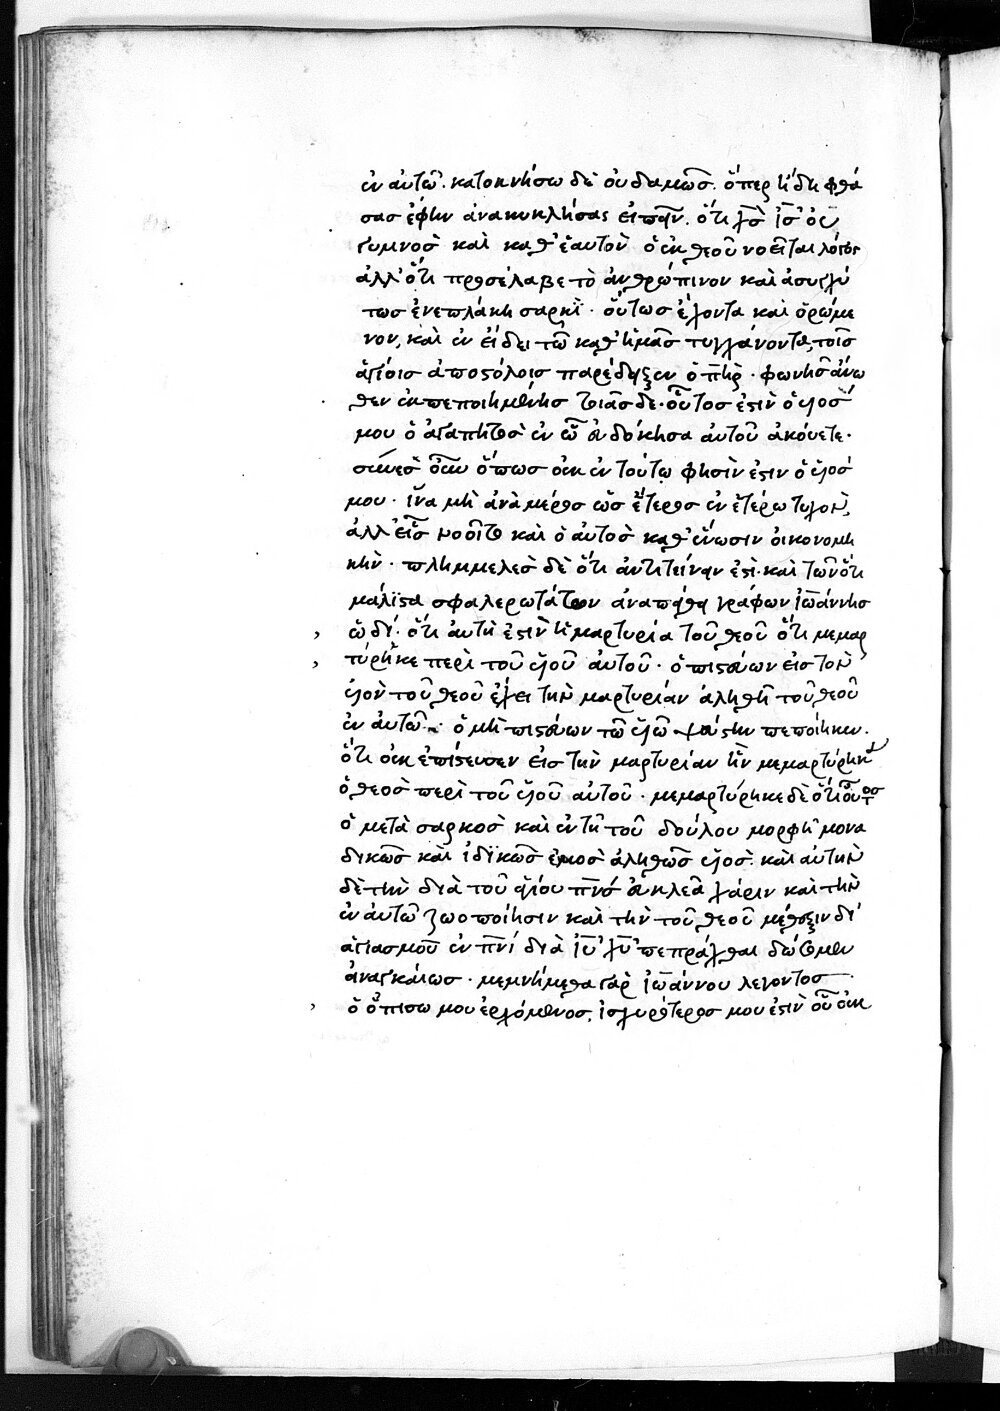 ἐν αὐτῶ. κατοκνήσω δὲ οὐδαμῶς. ὅπερ ἤδη φθά
σας ἔφην ἀνακυκλήσας εἰπεῖν. ὅτι χ̅ς̅ ι̅ς̅ οὐ
γυμνὸς καὶ καθ' ἑαυτὸν ὁ ἐκ θεοῦ νοεῖται λόγος
ἀλλ' ὅτι προσέλαβε τὸ ἀνθρώπινον καὶ ἀσυγχύ
τως ἐνεπλάκη σαρκὶ. οὕτως ἔχοντα καὶ ὁρώμε
νον, καὶ ἐν εἴδει τῶ καθ' ἡμᾶς τυγχάνοντα, τοῖς
ἁγίοις ἀποστόλοις παρέδειξεν ὁ π̅η̅ρ̅. φωνῆς ἄνω
θεν ἐκπεποιημένης τοιᾶς δε. οὗτος ἐστὶν ὁ υἱός
μου ὁ ἀγαπητὸς ἐν ὧ εὐδόκησα αὐτοῦ ἀκούετε.
σύνες οὖν ὅπως οὐκ ἐν τούτω φησὶν ἐστιν ὁ υἱός
μου. ἵνα μὴ ἀνὰ μέρος ὡς ἕτερος ἐν ἑτέρω
ἀλλ' εἷς νοοῖτο καὶ ὁ αὐτὸς καθ' ἕνωσιν οἰκονομι
κήν. πλημμελὲς δὲ ὅτι ἀντιτείνειν ἐστὶ. καὶ τῶν ὅτι
μάλιστα σφαλερωτάτων ἀναπείθει γράφων ἰωάννης
ὡδί. ὅτι αὐτὴ ἐστὶν ἡ μαρτυρία τοῦ θεοῦ ὅτι μεμαρ
τύρηκε περὶ τοῦ υἱοῦ αὐτοῦ. ὁ πιστεύων εἰς τὸν
υἱὸν τοῦ θεοῦ ἔχει τὴν μαρτυρίαν ἀληθῆ τοῦ θεοῦ
ἐν αὐτῶ. ὁ μὴ πιστεύων τῶ υἱῶ ψεύστην πεποίηκεν.
ὅτι οὐκ ἐπίστευσεν εἰς τὴν μαρτυρίαν ἣν μεμαρτύρηκεν
ὁ θεὸς περὶ τοῦ υἱοῦ αὐτοῦ. μεμαρτύρηκε δὲ ὅτι οὗτος
ὁ μετὰ σαρκὸς καὶ ἐν τῆ τοῦ δούλου μορφῆ μονα
δικῶς καὶ ἰδικῶς ἐμὸς ἀληθῶς υἱός. καὶ αὐτὴν
δὲ τὴν διὰ τοῦ ἁγίου π̅ν̅ς̅ εὐκλεᾶ χάριν καὶ τὴν
ἐν αὐτῶ ζωοποίησιν καὶ τὴν τοῦ θεοῦ μέθεξιν δι'
ἁγιασμοῦ ἐν π̅ν̅ι̅ διὰ ι̅υ̅ χ̅υ̅ πεπρᾶχθαι δώσομεν
ἀναγκαίως. μεμνήμεθα γὰρ ἰωάννου λέγοντος
ὁ ὀπίσω μου ἐρχόμενος, ἰσχυρότερος μου ἐστὶν οὗ οὐκ